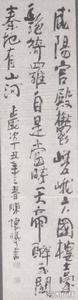 咸陽宮闕鬱嵯峨六國樓臺
艷綺羅自是當時天帝醉不關
秦地有山河 歲次丁丑年春陳書